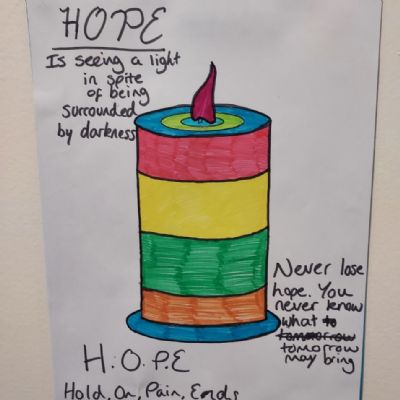 HOPE
Is seeing a light
in spite
of being
surrounded
by darkness
Never lose
hope. You
never know
what to
tomorrow
tomorrow
may bring
H.O.P.E
Hold, On, Pain, Ends